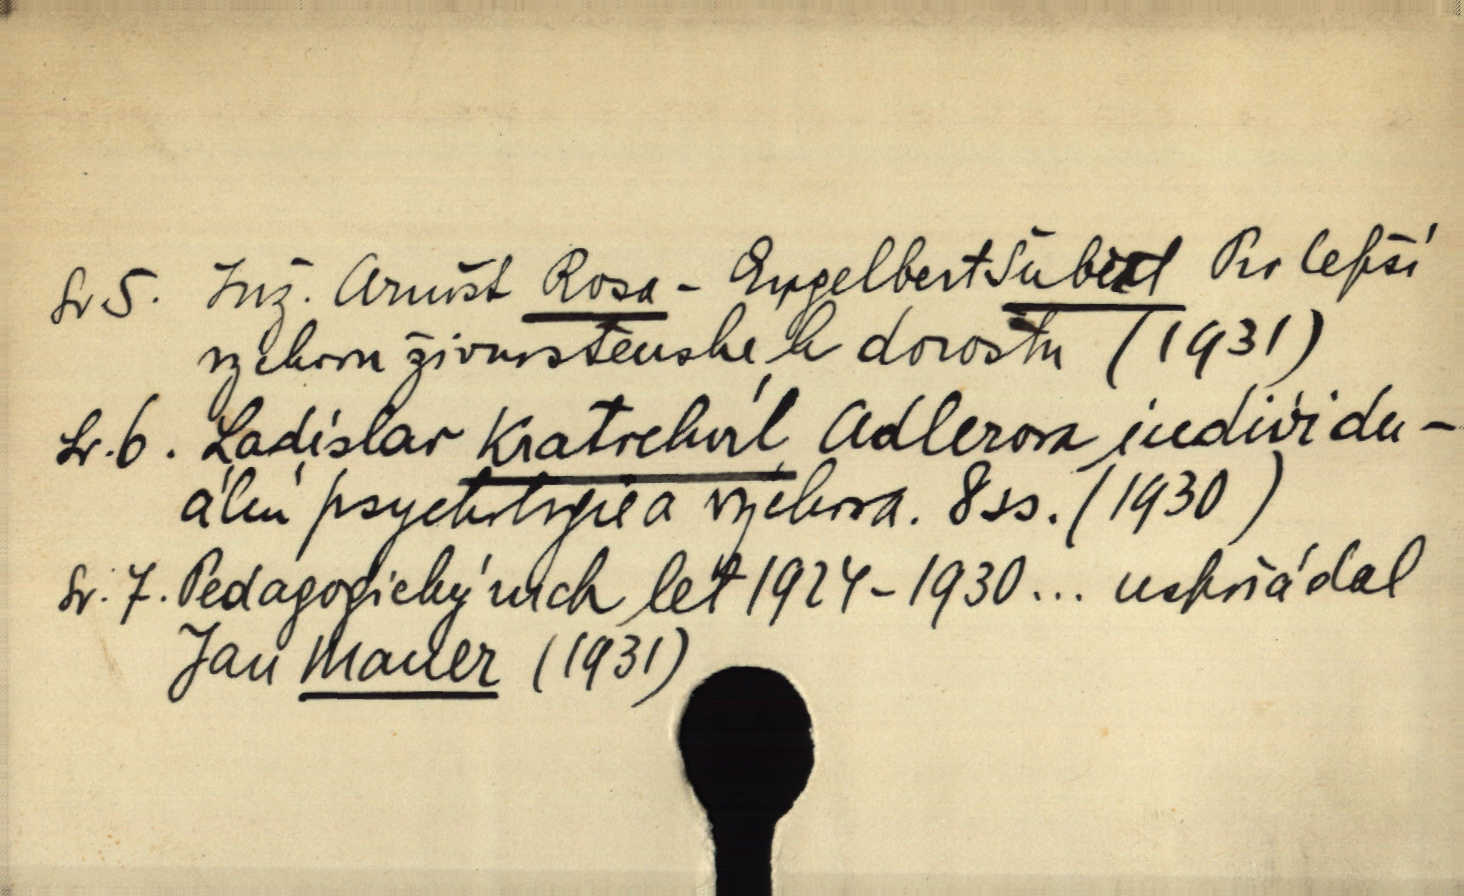 Sv 5. Inž. Arnošt Rosa - Engelbert Šubert Pro lepší
výchovu živnostenskeh dorostu (1931)
Sv. 6. Ladislav Kratochvíl Adlerova individu-
ální psychologie a výchova. 8 ss. (1930)
Sv. 7. Pedagogický ruch let 1924-1930... uspořádal
Jan Mauer (1931)